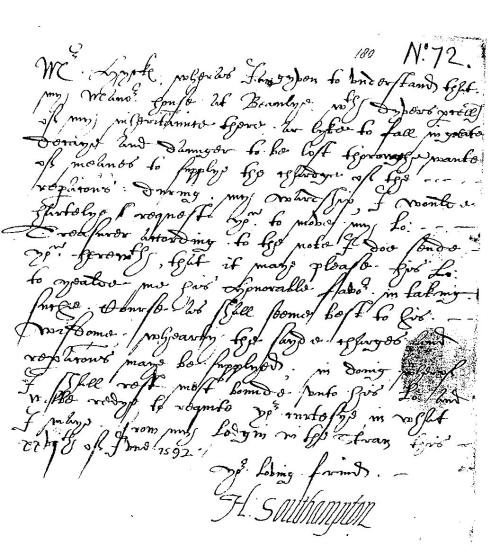 180 N° 72.
Mr. Hycke, wheras I am gyven to understand that
my Manor house at Beaulye wth dyvers parcells
of my inheritaunce there ar lyke to fall in greate
decaye and daunger to be lost thoroughe wante
of meanes to supply the chardge of the
reparacons during my wardship, I woulde
hartelye request you to move my Lo.
Treasurer according to the note I doe sende
you herewth, that it maye please his Lo.
to yealde me his honorable favor in taking
suche course as shall seeme best to his
wisdome, whearby the sayde charges and
reparacons maye be supplyed, in doing wheareof
I shall rest most bounde unto his Lo. and
wilbe redye to requite yor curtesye in what
I maye. From my lodging in the Stran this
of June 1592.
yor loving frind.
H. Southampton